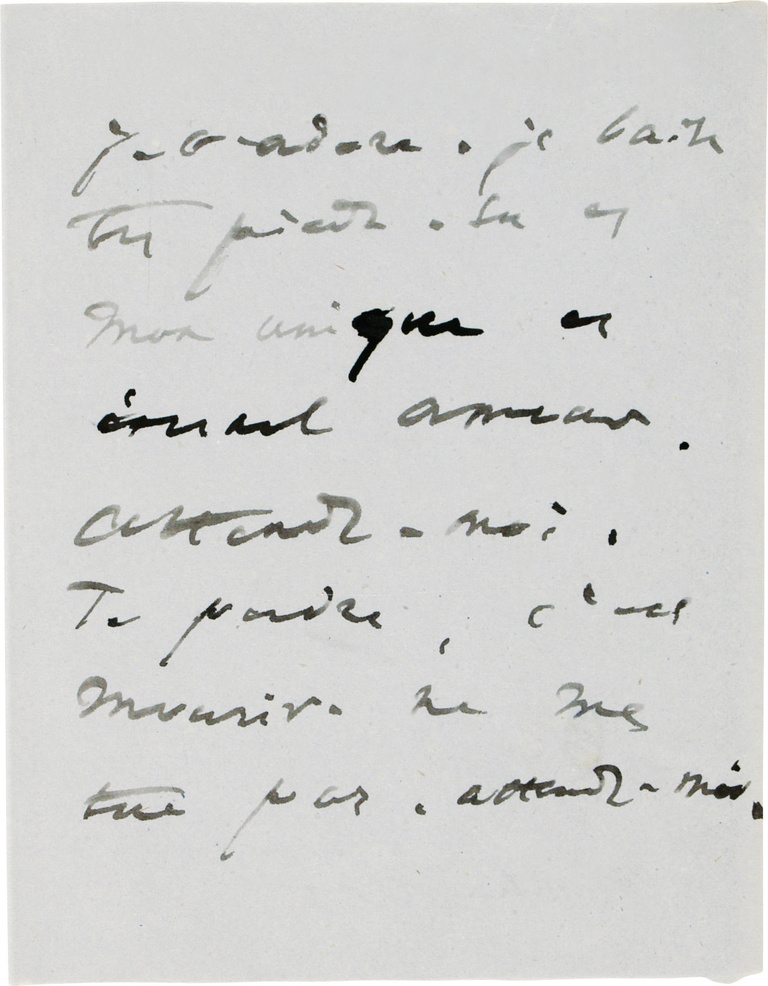 Je t'adore. je baise
tes pieds. tu es
mon unique et
éternel amour.
attends-moi.
Te perdre, c'est
mourir. ne me
tue pas. attends-moi.